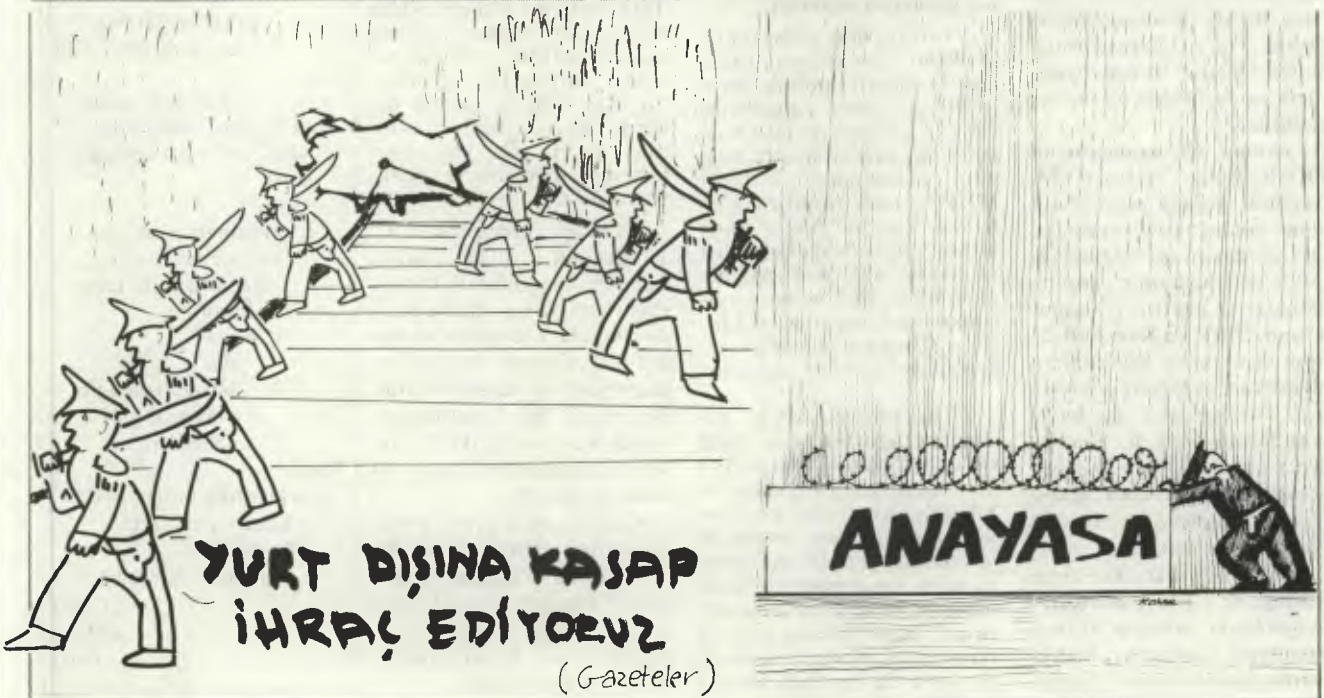 YURT DIŞINA KASAP
İHRAÇ EDİYORUZ
(Gazeteler)
ANAYASA